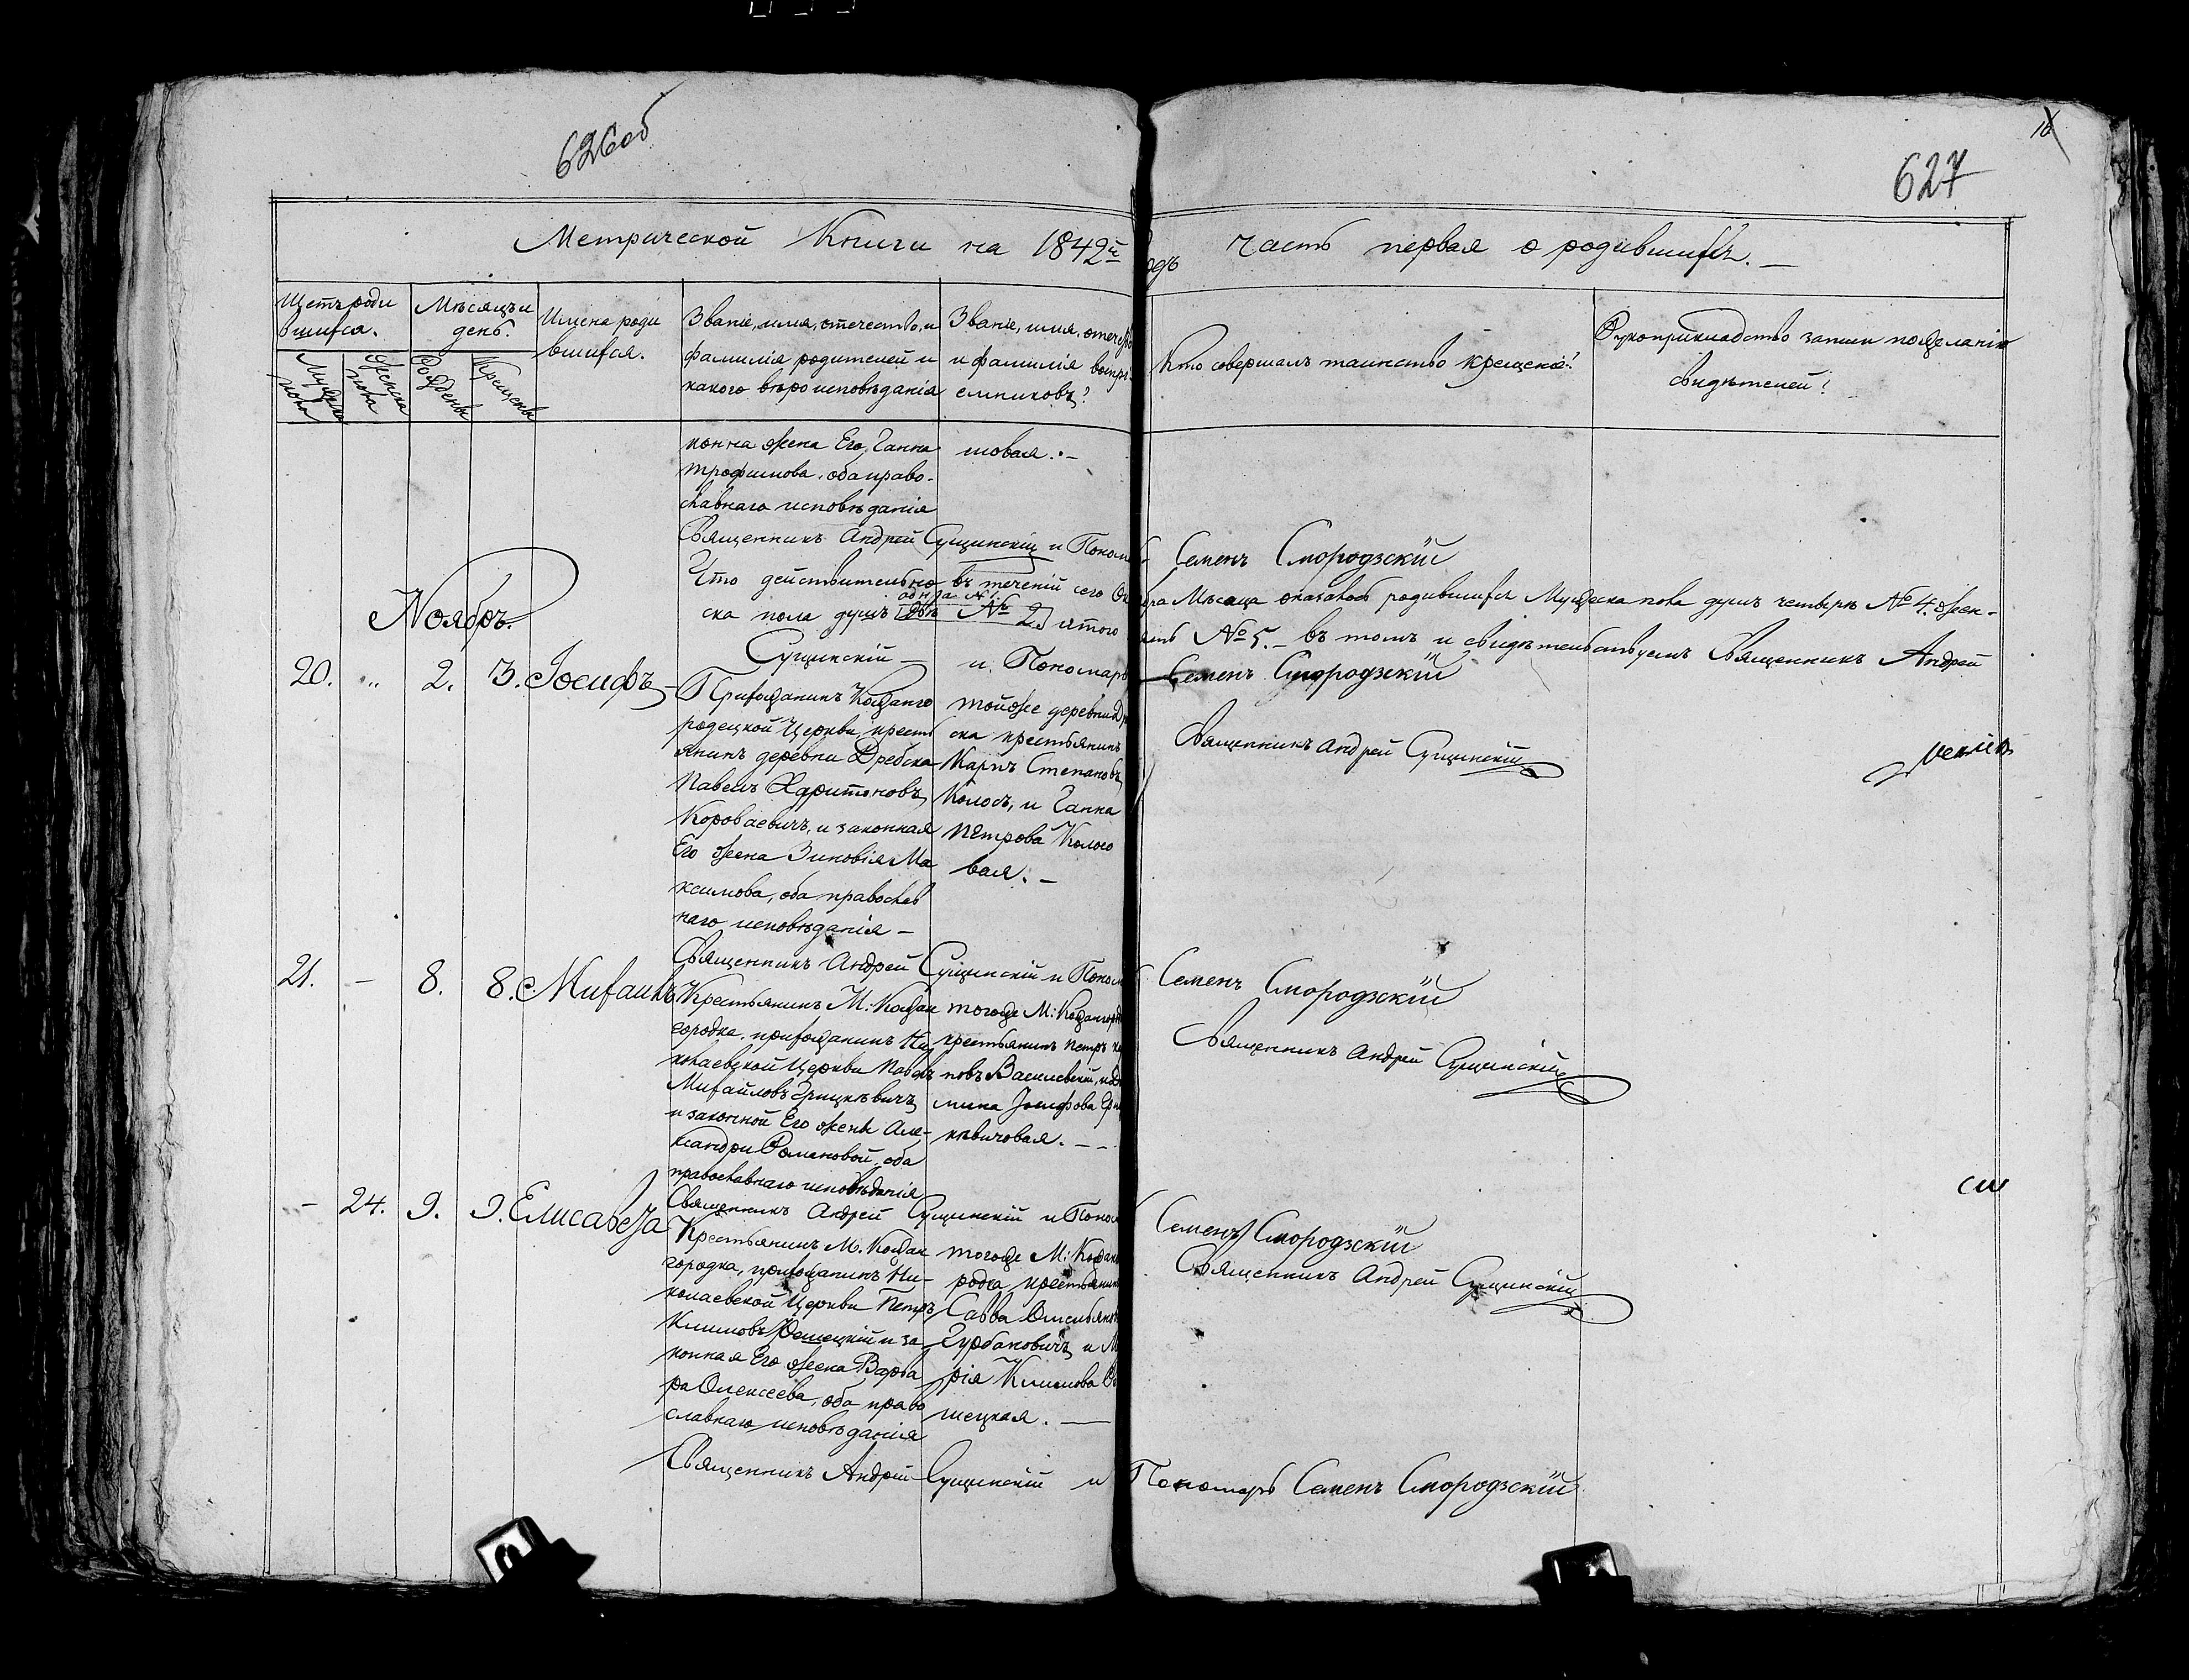 626об
16
627
Метрической Книги на 1842й
одъ Часть первая о родившихся.
Щетъ роди
вшихся.
Мужеска
пола
Женска
пола
Мѣсяцъ и
день.
Рожденія
Крещенія
Имена роди
вшихся.
Званіе, имя, отечество, и
фамилія родителей и
какого вѣроисповѣданія
Званіе, имя, отечес
и фамилія воспрі
емниковъ?
Кто совершалъ таинство крещенія?
Рукоприкладство записи по желанію
свидѣтелей?
конна жена Его Ганна
Трофимова, оба право-
славнаго исповѣданія
шовая. –
Священникъ Андрей Сущинскій и Поном
Семенъ Смородзскій
Что действительно въ теченіи сего Ок
бра Мѣсяца оказалось родившихся Мужеска пола душъ четыре № 4. жен-
одна № 1.
ска пола душъ двѣ № 2 итого
ять № 5. – въ томъ и свидѣтельствуемъ Священникъ Андрей
Сущинскій – и Пономарь
Семенъ Смородзскій
Ноябрь.
20. „ 2. 3. Іосифъ
Прихожанинъ Кожанго
родецкой Церкви, кресть
янинъ деревни Дребска
Павелъ Харитоновъ
Короваевичъ, и законная
Его жена Зиновія Ма
ксимова, оба православ
наго исповѣданія –
тойже деревни Д
ска крестьянинъ
Карпъ Степановъ
Колосъ, и Ганна
Петрова Колосо
вая. –
Священникъ Андрей Сущинскій
Священникъ Андрей Сущинскій и Поном
Семенъ Смородзскій
21. – 8. 8. Михаилъ
Крестьянинъ М: Кожан
городка, прихожанинъ Ни
колаевской Церкви Павелъ
Михайловъ Грицкевичъ
и законной Его жены Але-
ксандри Романовой, оба
православнаго исповѣданія
тогоже М: Кожангород
крестьянинъ Петръ
повъ Василевскій,
мина Іосифова Гри
кевичовая. – –
Священникъ Андрей Сущинскій
Священникъ Андрей Сущинскій и Поном
Семенъ Смородзскій
– 24. 9. 9. Елисавета
Крестьянинъ М. Кожан
городка, прихожанинъ Ни-
колаевской Церкви Петръ
Климовъ Рошецкій и за
конная Его жена Варва
ра Олексеева, оба право
славнаго исповѣданія
тогоже М: Кожан
родка крестьянин
Савва Омельянов
Гурбановичъ и М
рія Климова Ро
шецкая. —
Священникъ Андрей Сущинскій
сш
Священникъ Андрей Сущинскій и
Пономарь Семенъ Смородзскій